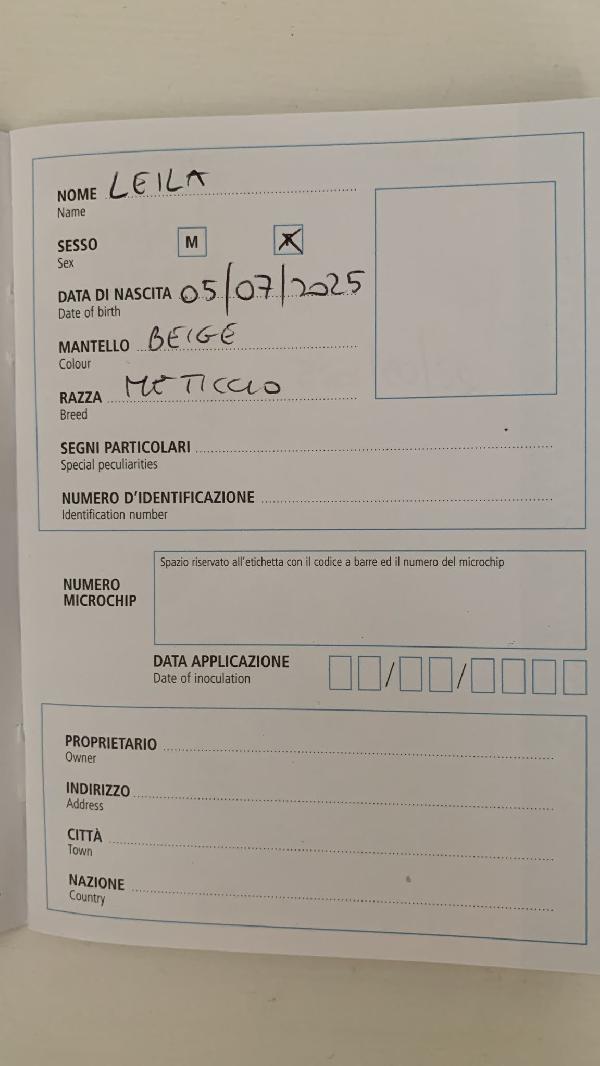 NOME LEILA
Name
SESSO M
Sex
DATA DI NASCITA 05/07/2025
Date of birth
MANTELLO BEIGE
Colour
RAZZA METICCIO
Breed
SEGNI PARTICOLARI
Special peculiarities
NUMERO D'IDENTIFICAZIONE
Identification number
NUMERO MICROCHIP
Spazio riservato all'etichetta con il codice a barre ed il numero del microchip
DATA APPLICAZIONE
Date of inoculation
PROPRIETARIO
Owner
INDIRIZZO
Address
CITTÀ
Town
NAZIONE
Country